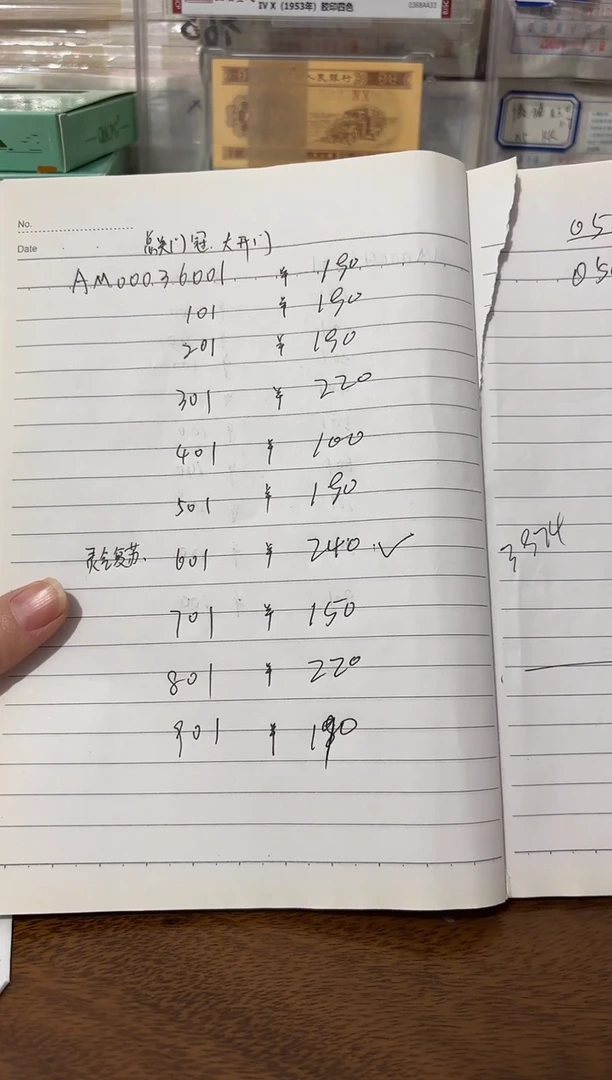 IV X（1953年）胶印四色
0368AA33
人民银行
No.
Date
冠.大开门
AM00036001 ¥ 190
101 ¥ 190
201 ¥ 190
301 ¥ 220
401 ¥ 100
501 ¥ 190
灵气复苏. 601 ¥ 240 ✓
701 ¥ 150
801 ¥ 220
901 ¥ 190
05
3974